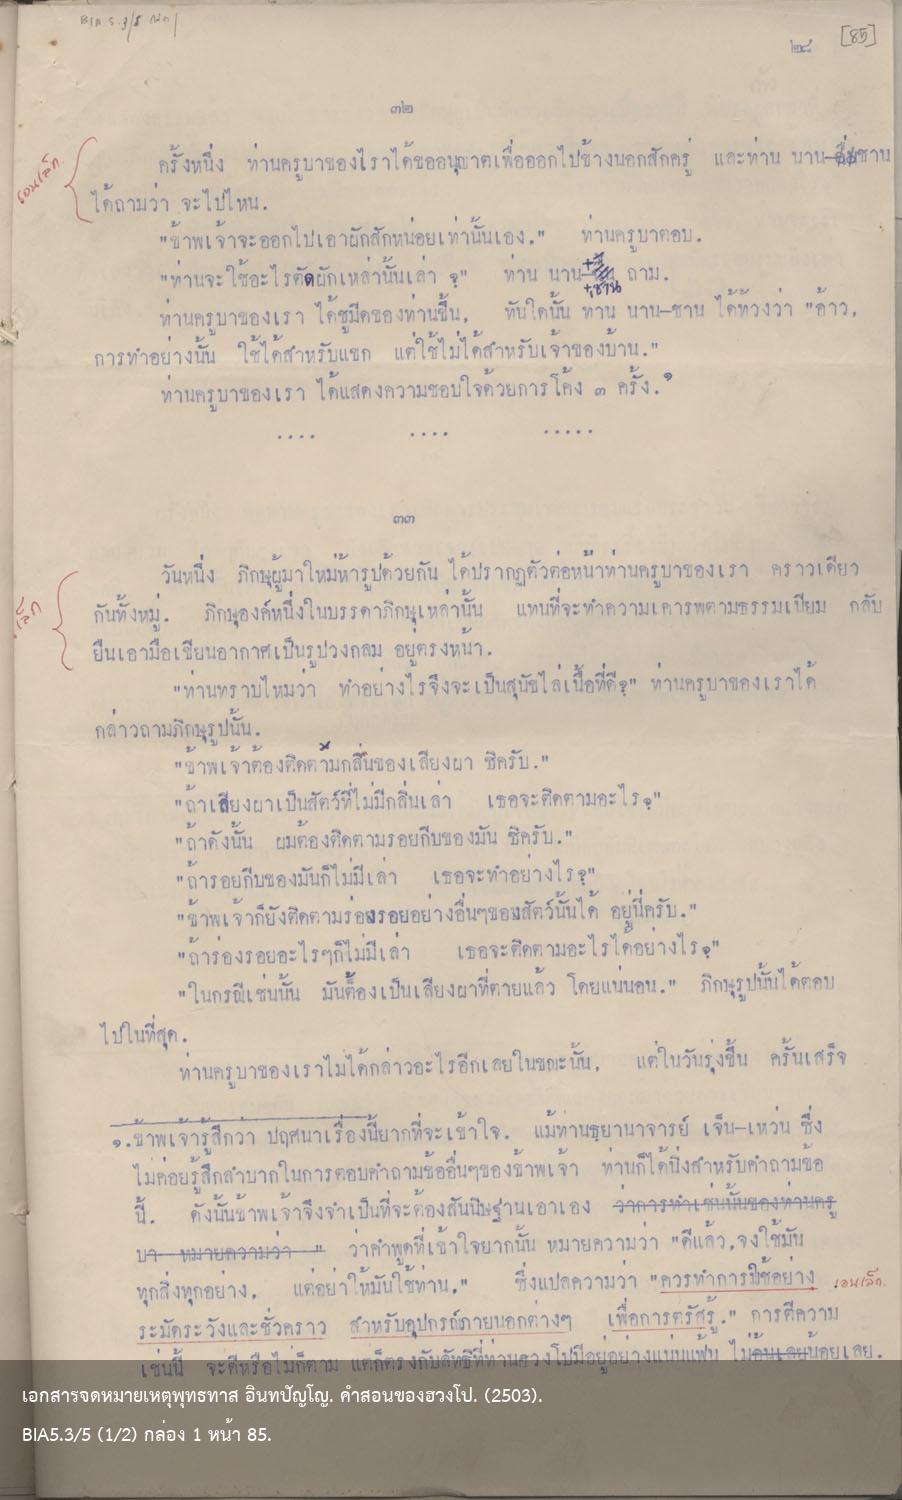 BIA 5.3/5
๒๘
[85]
๓๒
ครั้งหนึ่ง ท่านครูบาของเราได้ขออนุญาตเพื่อออกไปข้างนอกสักครู่ และท่าน นาน-ชวน
เอนเล็ก.
ได้ถามว่า จะไปไหน.
"ข้าพเจ้าจะออกไปเอาผักสักหน่อยเท่านั้นเอง." ท่านครูบาตอบ.
"ท่านจะใช้อะไรตัดผักเหล่านั้นเล่า ?" ท่าน นาน- ถาม.
ท่านครูบาของเรา ได้ชูมีดของท่านขึ้น, ทันใดนั้น ท่าน นาน-ชวน ได้ท้วงว่า "อ้าว,
การทำอย่างนั้น ใช้ได้สำหรับแขก แต่ใช้ไม่ได้สำหรับเจ้าของบ้าน."
ท่านครูบาของเรา ได้แสดงความชอบใจด้วยการโค้ง ๓ ครั้ง.๑
.... .... .....
๓๓
วันหนึ่ง ภิกษุผู้มาใหม่ห้ารูปด้วยกัน ได้ปรากฏตัวต่อหน้าท่านครูบาของเรา คราวเดียว
กันทั้งหมู่. ภิกษุองค์หนึ่งในบรรดาภิกษุเหล่านั้น แทนที่จะทำความเคารพตามธรรมเนียม กลับ
ยืนเอามือเขียนอากาศเป็นรูปวงกลม อยู่ตรงหน้า.
"ท่านทราบไหมว่า ทำอย่างไรจึงจะเป็นสุนัขไล่เนื้อที่ดี?" ท่านครูบาของเราได้
กล่าวถามภิกษุรูปนั้น.
"ข้าพเจ้าต้องติดตามกลิ่นของเลียงผา ซิครับ."
"ถ้าเลียงผาเป็นสัตว์ที่ไม่มีกลิ่นเล่า เธอจะติดตามอะไร?"
"ถ้าดังนั้น ผมต้องติดตามรอยกีบของมัน ซิครับ."
"ถ้ารอยกีบของมันก็ไม่มีเล่า เธอจะทำอย่างไร?"
"ข้าพเจ้าก็ยังติดตามร่องรอยอย่างอื่นๆของสัตว์นั้นได้ อยู่นี่ครับ."
"ถ้าร่องรอยอะไรๆก็ไม่มีเล่า เธอจะติดตามอะไรได้อย่างไร?"
"ในกรณีเช่นนั้น มันต้องเป็นเลียงผาที่ตายแล้ว โดยแน่นอน." ภิกษุรูปนั้นได้ตอบ
ไปในที่สุด.
ท่านครูบาของเราไม่ได้กล่าวอะไรอีกเลยในขณะนั้น, แต่ในวันรุ่งขึ้น ครั้นเสร็จ
๑.ข้าพเจ้ารู้สึกว่า ปฤศนาเรื่องนี้ยากที่จะเข้าใจ. แม้ท่านธฺยานาจารย์ เจ็น-เหว่น ซึ่ง
ไม่ค่อยรู้สึกลำบากในการตอบคำถามข้ออื่นๆของข้าพเจ้า ท่านก็ได้นิ่งสำหรับคำถามข้อ
นี้. ดังนั้นข้าพเจ้าจึงจำเป็นที่จะต้องสันนิษฐานเอาเอง ว่าการทำเช่นนั้นของท่านครู
บา หมายความว่า " ว่าคำพูดที่เข้าใจยากนั้น หมายความว่า "ดีแล้ว,จงใช้มัน
ทุกสิ่งทุกอย่าง, แต่อย่าให้มันใช้ท่าน," ซึ่งแปลความว่า "ควรทำการใช้อย่าง
เอนเล็ก.
ระมัดระวังและชั่วคราว สำหรับอุปกรณ์ภายนอกต่างๆ เพื่อการตรัสรู้." การตีความ
เช่นนี้ จะดีหรือไม่ก็ตาม แต่ก็ตรงกับลัทธิที่ท่านฮวงโปมีอยู่อย่างแน่นแฟ้น ไม่น้อยเลย.
เอกสารจดหมายเหตุพุทธทาส อินทปัญโญ. คำสอนของฮวงโป. (2503).
BIA5.3/5 (1/2) กล่อง 1 หน้า 85.